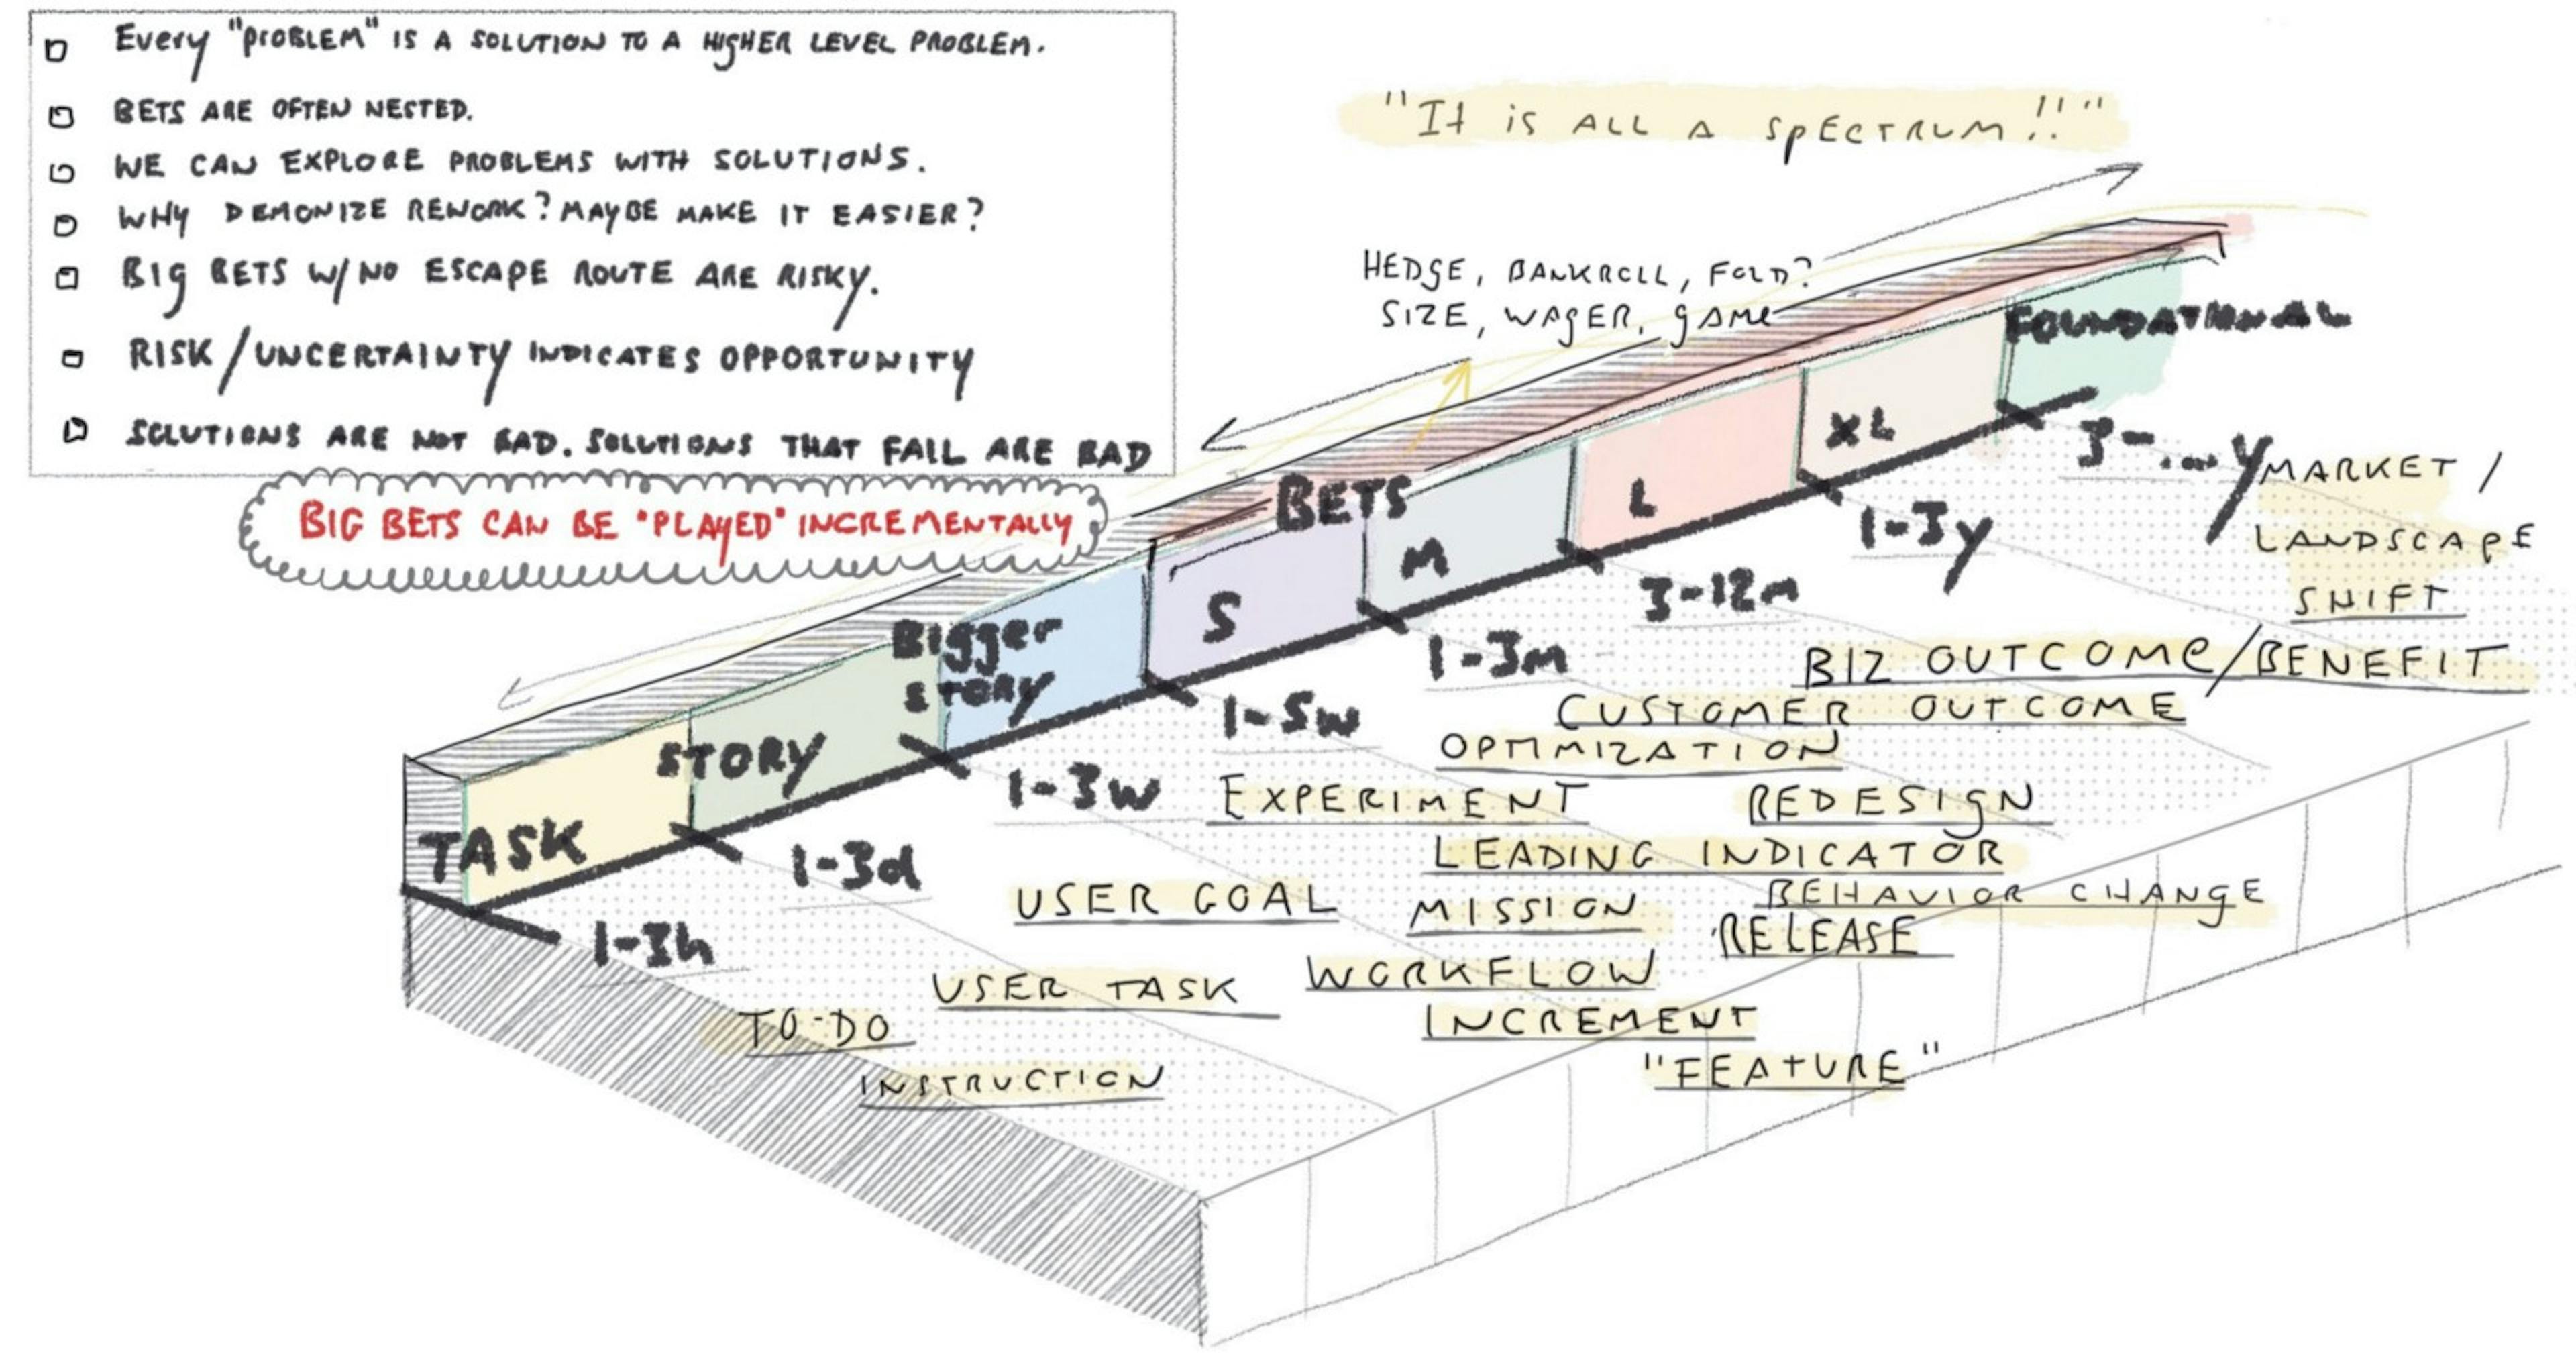 Every "PROBLEM" IS A SOLUTION TO A HIGHER LEVEL PROBLEM.
BETS ARE OFTEN NESTED.
WE CAN EXPLORE PROBLEMS WITH SOLUTIONS.
WHY DEMONIZE REWORK? MAYBE MAKE IT EASIER?
BIG BETS W/ NO ESCAPE ROUTE ARE RISKY.
RISK / UNCERTAINTY INDICATES OPPORTUNITY
SOLUTIONS ARE NOT BAD. SOLUTIONS THAT FAIL ARE BAD
BIG BETS CAN BE "PLAYED" INCREMENTALLY
"It is ALL A SPECTRUM!!"
HEDGE, BANKROLL, FOLD?
SIZE, WAGER, GAME
TASK
STORY
Bigger
STORY
BETS
S
M
L
XL
FOUNDATIONAL
1-3h
1-3d
1-3w
1-5w
1-3m
3-12m
1-3y
3-....y
MARKET /
LANDSCAPE
SHIFT
BIZ OUTCOME/BENEFIT
CUSTOMER OUTCOME
OPTIMIZATION
EXPERIMENT
REDESIGN
LEADING INDICATOR
USER GOAL
MISSION
BEHAVIOR CHANGE
RELEASE
USER TASK
WORKFLOW
TO-DO
INCREMENT
INSTRUCTION
"FEATURE"